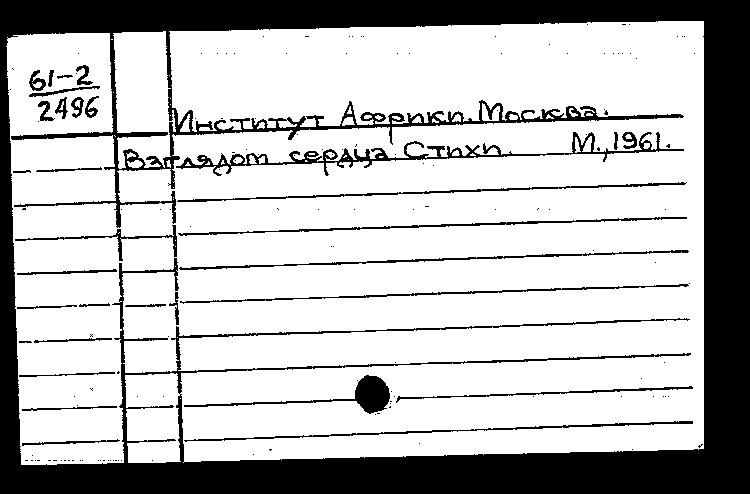 61-2
2496
Институт Африки. Москва.
Взглядом сердца Стихи. М., 1961.